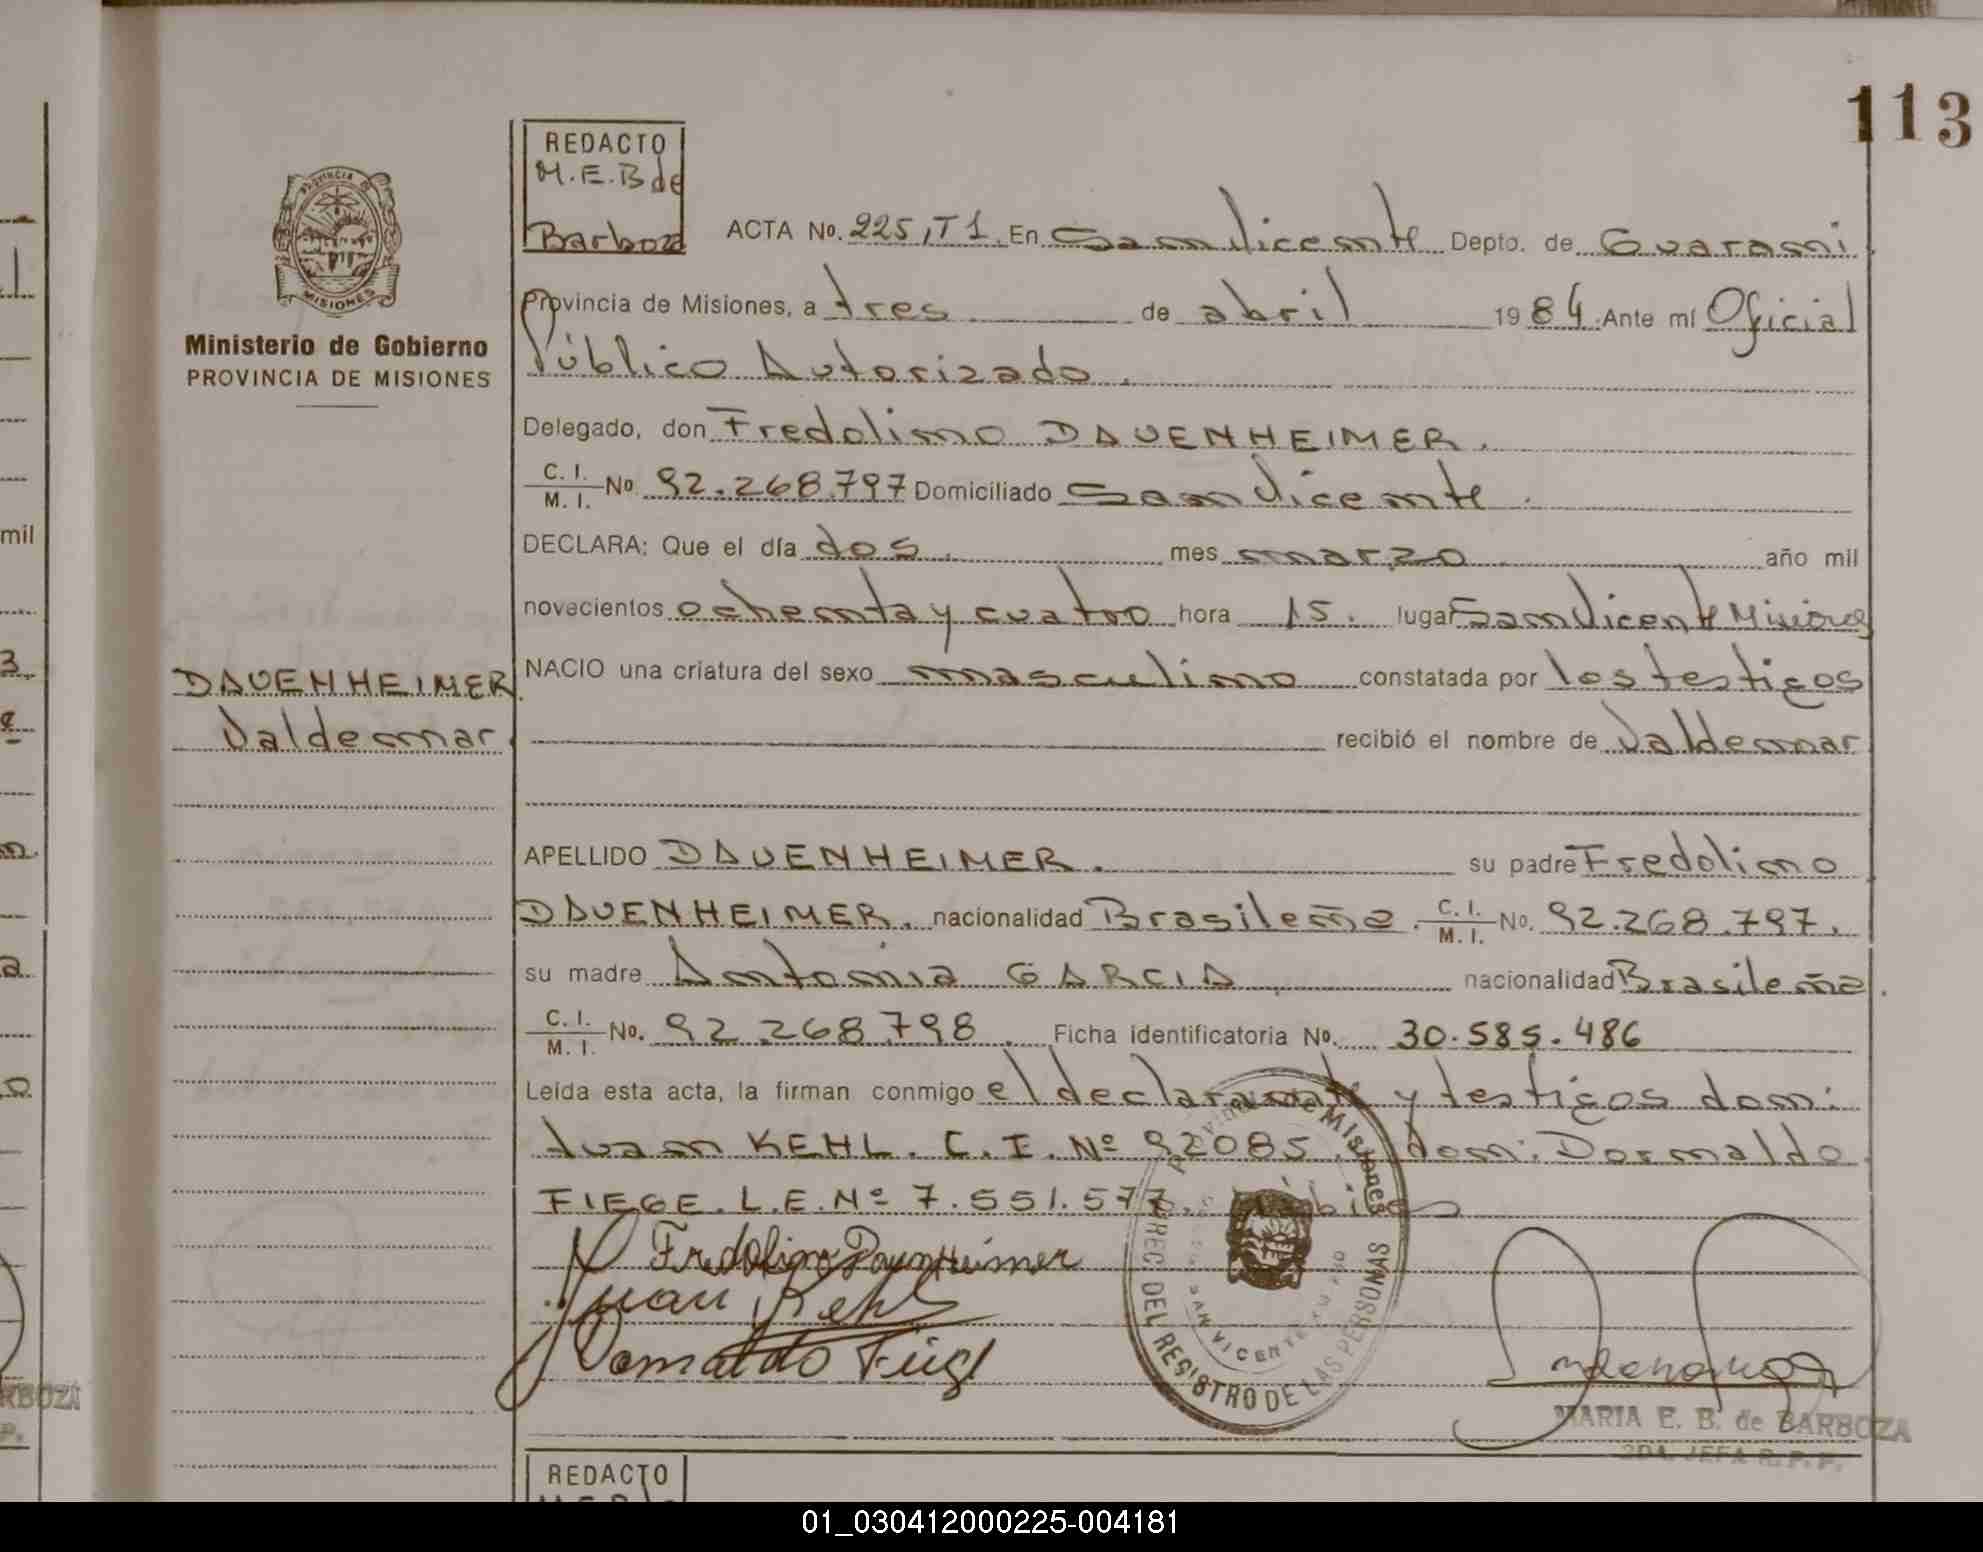 113
REDACTO
M.E.B de
Barboza
ACTA No. 225, T1. En San Vicente Depto. de Guarani
Provincia de Misiones, a tres de abril 1984 Ante mí Oficial
Público Autorizado.
PROVINCIA DE
MISIONES
Ministerio de Gobierno
PROVINCIA DE MISIONES
Delegado, don Fredolino DAUENHEIMER.
C. I.
M. I. No 92.268.797 Domiciliado San Vicente.
DECLARA: Que el día dos. mes marzo año mil
novecientos ochenta y cuatro hora 15. lugar San Vicente Misiones
DAUENHEIMER
Valdemar.
NACIO una criatura del sexo masculino constatada por los testigos
recibió el nombre de Valdemar
APELLIDO DAUENHEIMER. su padre Fredolino
DAUENHEIMER. nacionalidad Brasileña. C. I.
M. I. No. 92.268.797.
su madre Antonia GARCIA nacionalidad Brasileña.
C. I.
M. I. No. 92.268.798 Ficha identificatoria No. 30.585.486
Leída esta acta, la firman conmigo el declarante y testigos don:
Juan KEHL. C.I. Nº 92085. don: Dormaldo
FIEGE. L.E. Nº 7.551.577. Hábiles
Fredolino Dauenheimer
Juan Kehl
Provincia de Misiones
DIREC. DEL REGISTRO DE LAS PERSONAS
SAN VICENTE
MARIA E. B. de BARBOZA
2DA. JEFA R. P. P.
mil
3
RBOZA
P.
REDACTO
01_030412000225-004181